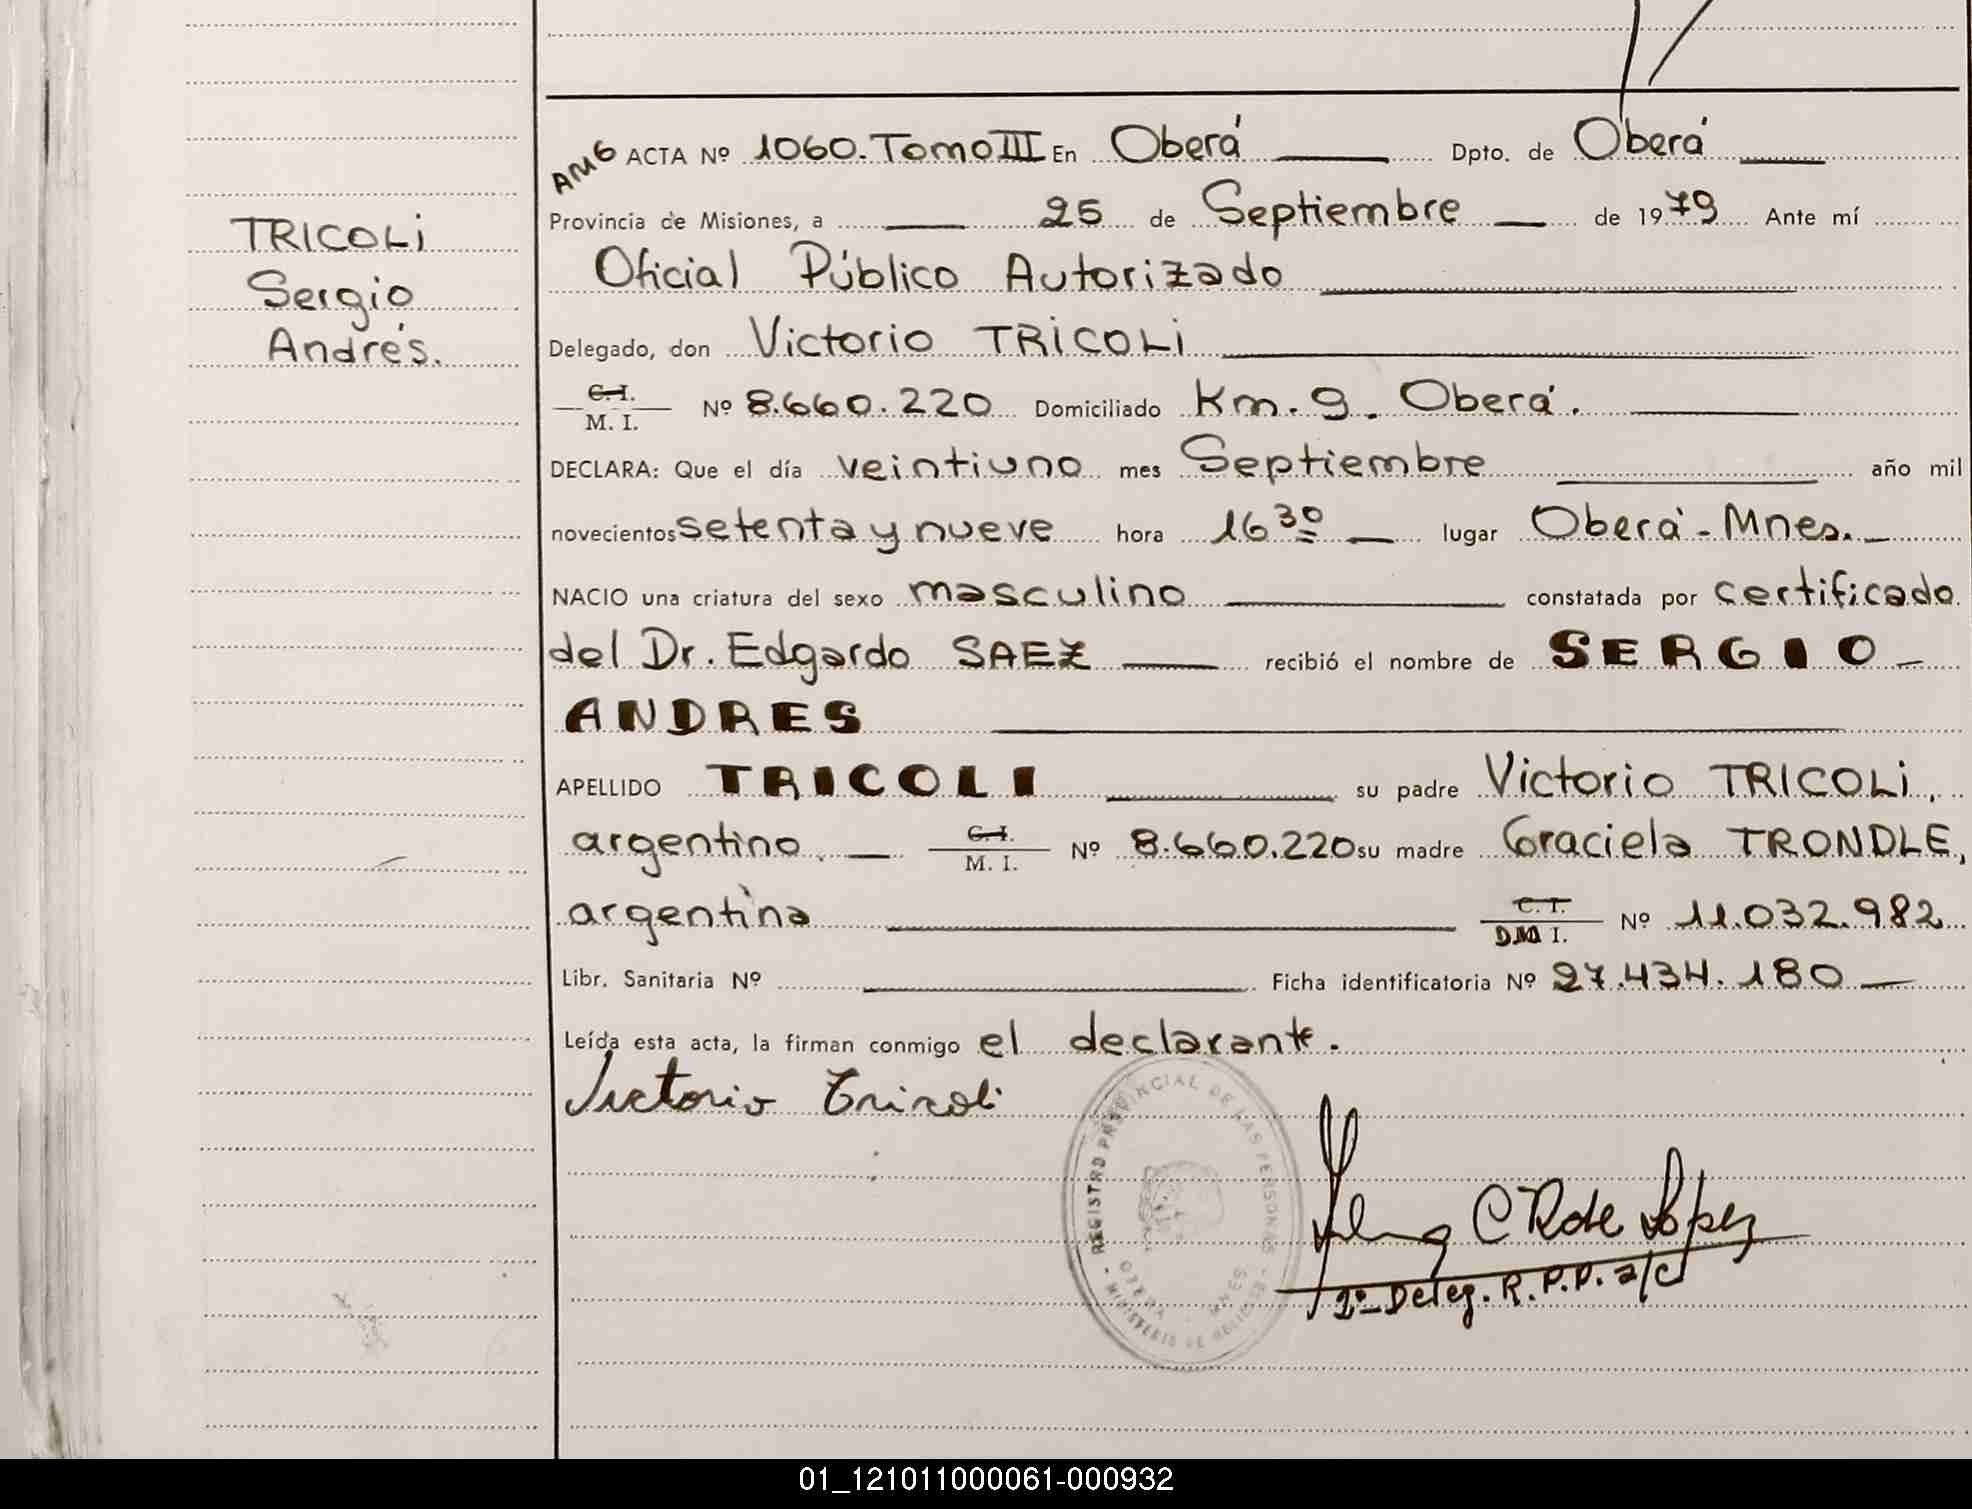 AMG ACTA Nº 1060. Tomo III En Oberá Dpto. de Oberá
Provincia de Misiones, a 25 de Septiembre de 1979 Ante mí
Oficial Público Autorizado
TRICOLI
Sergio
Andrés.
Delegado, don Victorio TRICOLI
C.I.
M. I. Nº 8.660.220 Domiciliado Km. 9. Oberá.
DECLARA: Que el día veintiuno mes Septiembre año mil
novecientos setenta y nueve hora 16 30 lugar Oberá - Mnes.
NACIO una criatura del sexo masculino constatada por certificado
del Dr. Edgardo SAEZ recibió el nombre de SERGIO
ANDRES
APELLIDO TRICOLI su padre Victorio TRICOLI,
argentino. C.I.
M. I. Nº 8.660.220 su madre Graciela TRONDLE,
argentina C.I.
DNI I. Nº 11.032.982
Libr. Sanitaria Nº Ficha identificatoria Nº 27.434.180
Leída esta acta, la firman conmigo el declarante.
Victorio Tricoli
REGISTRO PROVINCIAL DE LAS PERSONAS
OBERA MNES
C R de López
2º Deleg. R.P.P. a/c
01_121011000061-000932